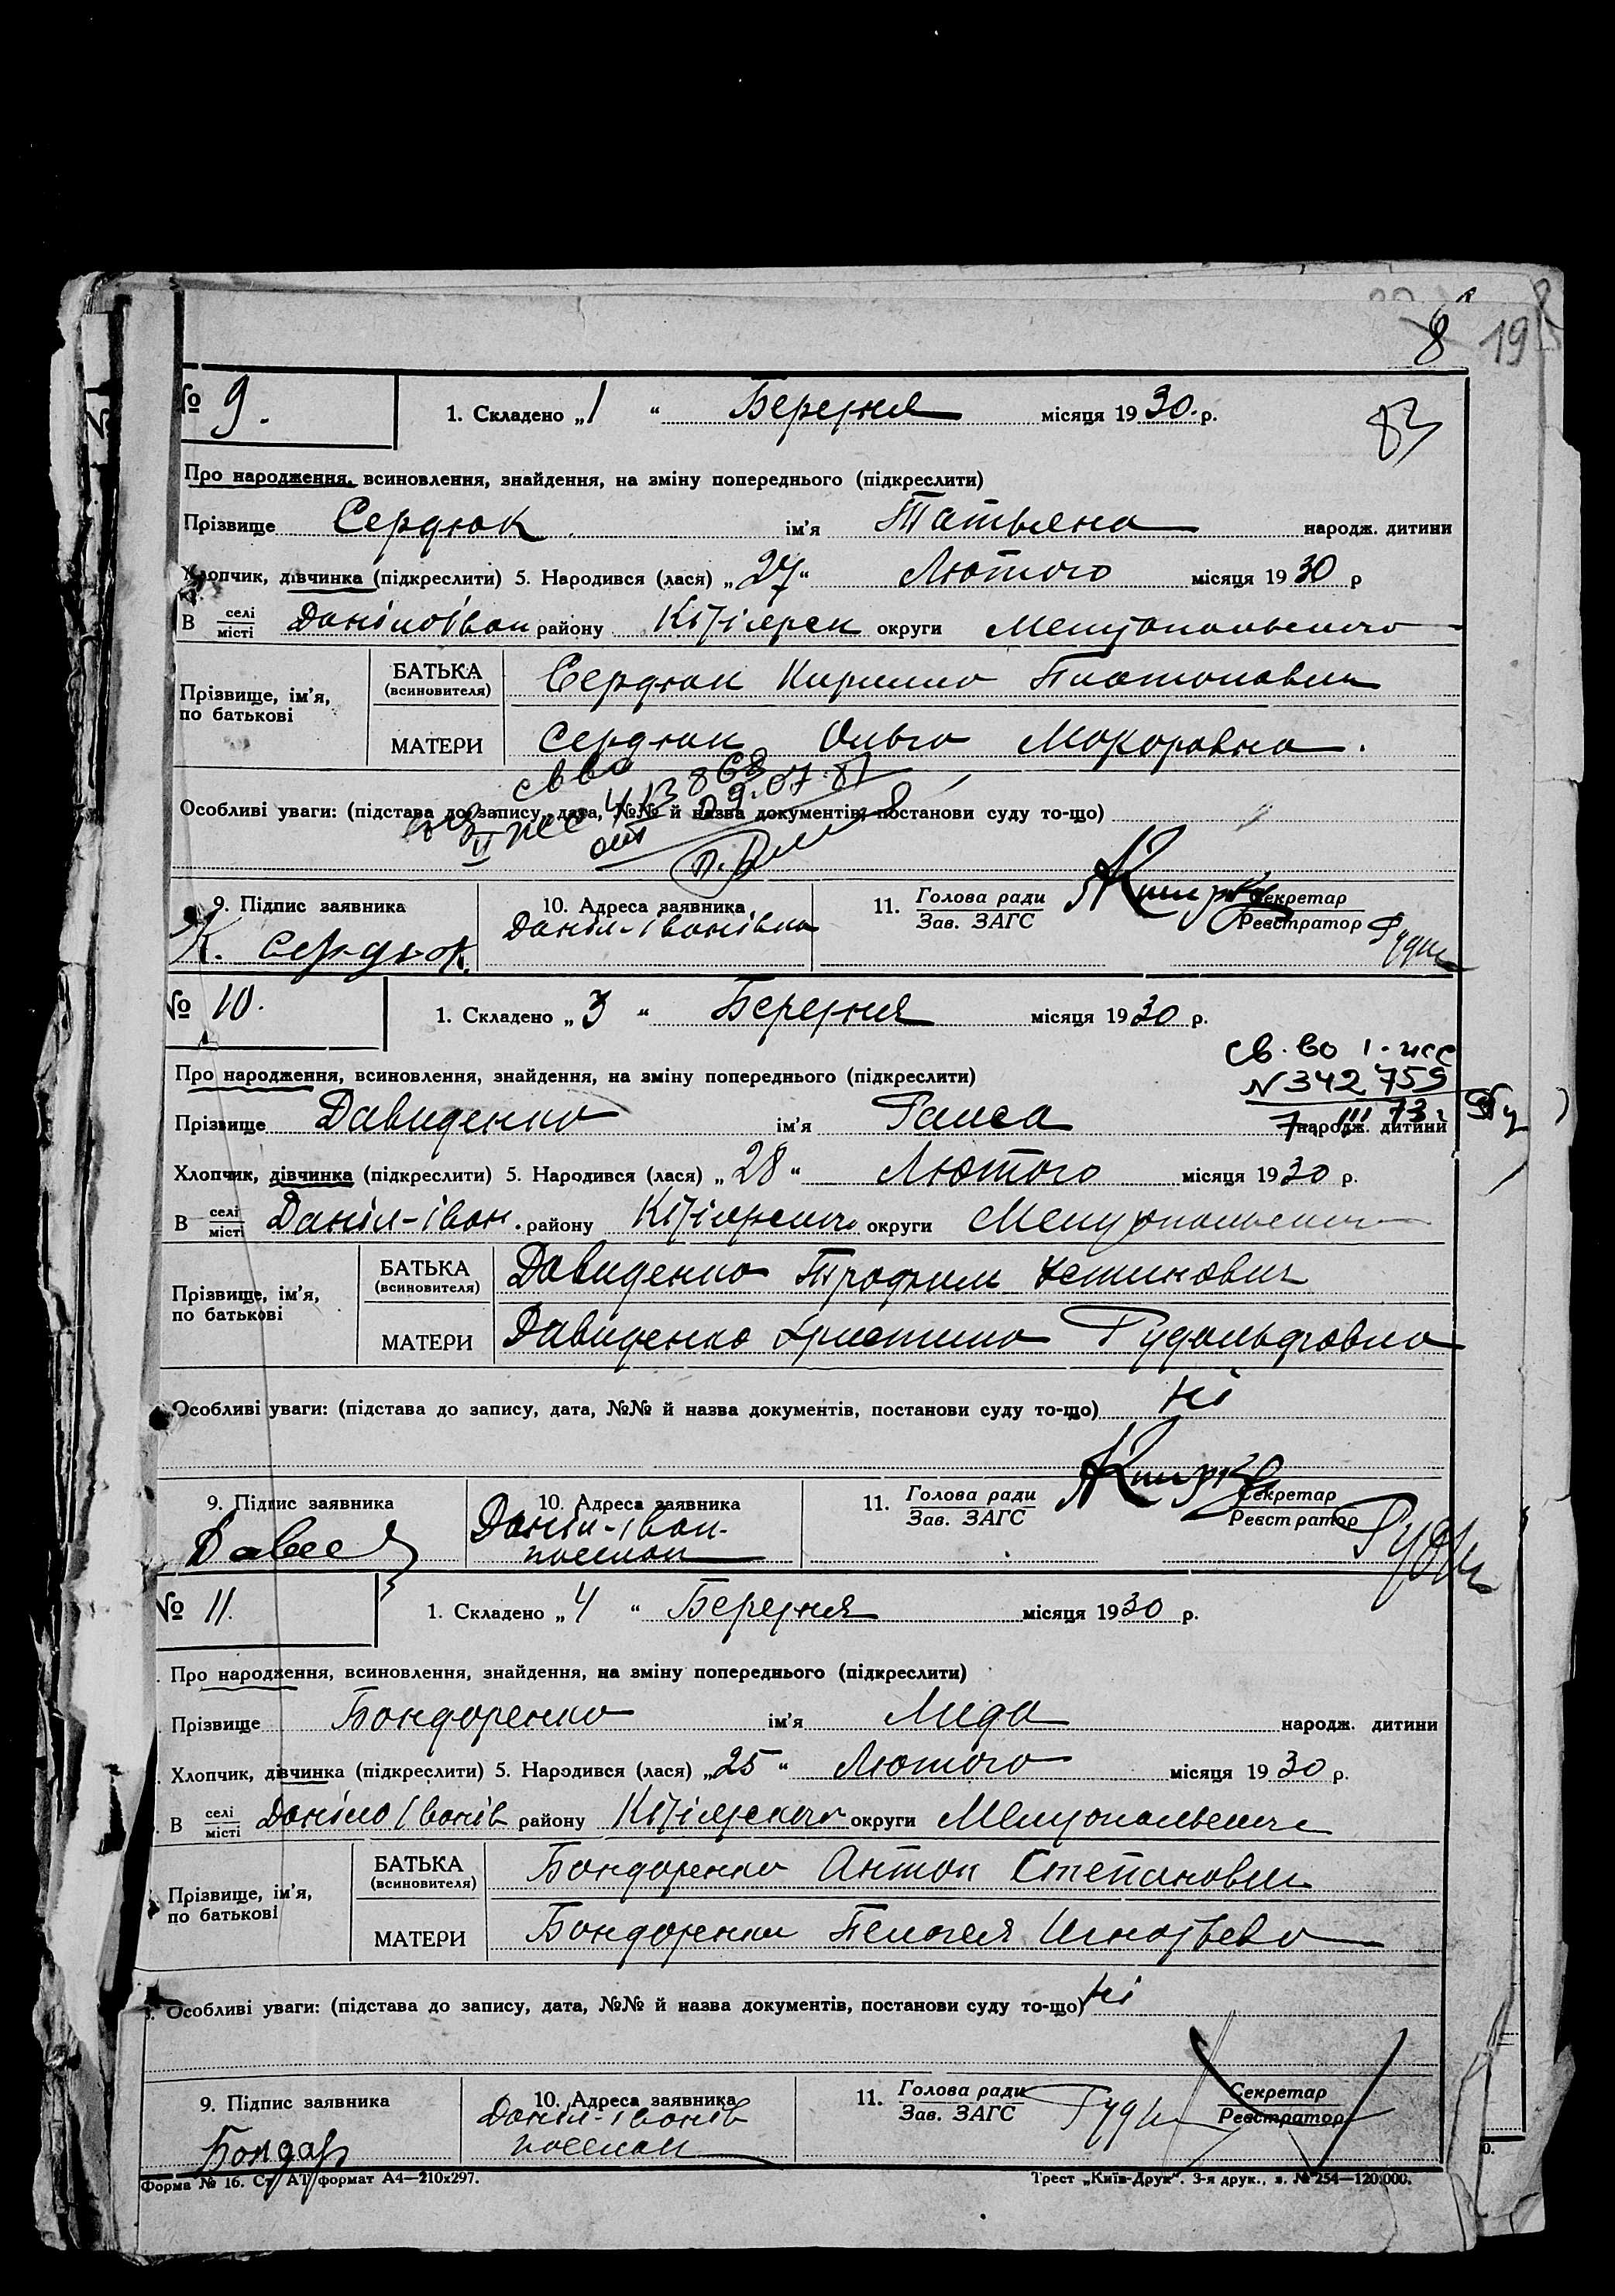 8 19
№ 9. 1. Складено „1 “ Березня місяця 1930. р.
83
Про народження, всиновлення, знайдення, на зміну попереднього (підкреслити)
Прізвище Сердюк ім’я Татьяна народж. дитини
Хлопчик, дівчинка (підкреслити) 5. Народився (лася) „27“ Лютого місяця 1930 р
В селі місті Даніло Іван району Кізіярск округи Мелітопольського
Прізвище, ім’я, по батькові
БАТЬКА (всиновителя) Сердюк Кирилло Платонович
МАТЕРИ Сердюк Ольга Макаровна.
св во
413 863
09.07.81
Особливі уваги: (підстава до запису, дата, №№ й назва документів, постанови суду то-що)
9. Підпис заявника 10. Адреса заявника 11. Голова ради Зав. ЗАГС Секретар Реєстратор
К. Сердюк Даніл-Іванівка
№ 10. 1. Складено „3 “ Березня місяця 1930 р.
св-во 1-жс
N 342759
7 III 73г
Про народження, всиновлення, знайдення, на зміну попереднього (підкреслити)
Прізвище Давиденко ім’я Раиса народж. дитини
Хлопчик, дівчинка (підкреслити) 5. Народився (лася) „28“ Лютого місяця 1930 р.
В селі місті Даніл-Іван. району Кізіярского округи Мелітопольского
Прізвище, ім’я, по батькові
БАТЬКА (всиновителя) Давиденко Трофим Устинович
МАТЕРИ Давиденко Христина Рудольфовна
Особливі уваги: (підстава до запису, дата, №№ й назва документів, постанови суду то-що) Ні
9. Підпис заявника 10. Адреса заявника 11. Голова ради Зав. ЗАГС Секретар Реєстратор
Даніл-Іван-
№ 11. 1. Складено „4 “ Березня місяця 1930 р.
Про народження, всиновлення, знайдення, на зміну попереднього (підкреслити)
Прізвище Бондаренко ім’я Лида народж. дитини
Хлопчик, дівчинка (підкреслити) 5. Народився (лася) „25“ Лютого місяця 1930 р.
В селі місті Даніло Іванів району Кізіярского округи Мелітопольского
Прізвище, ім’я, по батькові
БАТЬКА (всиновителя) Бондаренко Антон Степанович
МАТЕРИ Бондаренко Пелагея Игнатьевна
Особливі уваги: (підстава до запису, дата, №№ й назва документів, постанови суду то-що) Ні
9. Підпис заявника 10. Адреса заявника 11. Голова ради Зав. ЗАГС Секретар Реєстратор
Бондар Даніл-Іванів
Форма № 16. Ст. АТ формат А4—210х297. Трест „Київ-Друк“. 3-я друк., з. № 254—120.000.